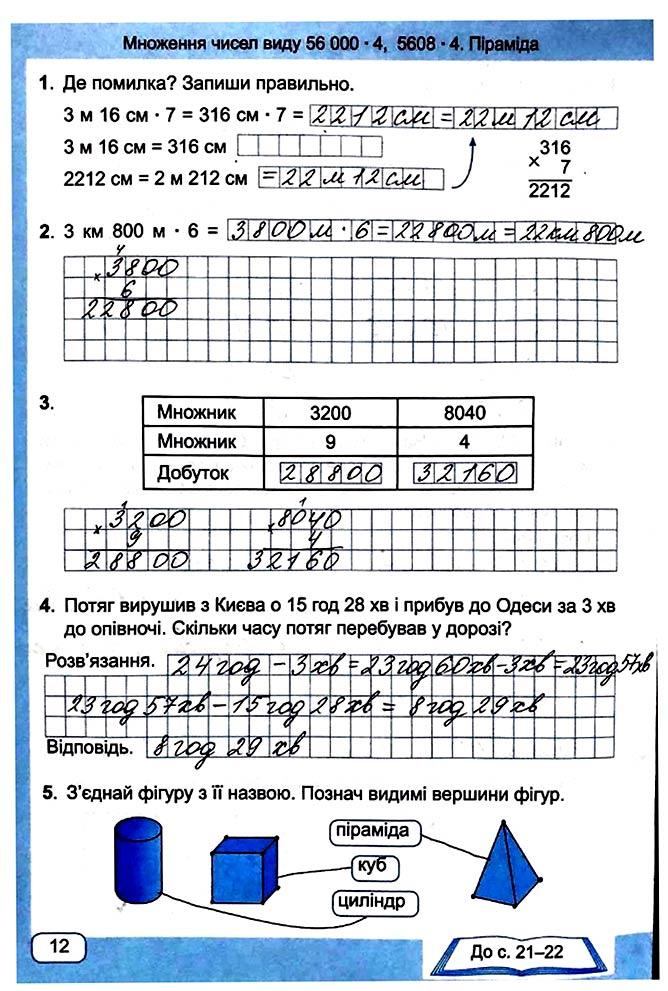 Множення чисел виду 56 000 · 4, 5608 · 4. Піраміда
1. Де помилка? Запиши правильно.
3 м 16 см · 7 = 316 см · 7 = 2212 см = 22 м 12 см
3 м 16 см = 316 см
316
× 7
2212
2212 см = 2 м 212 см = 22 м 12 см
2. 3 км 800 м · 6 = 3800 м · 6 = 22800 м = 22 км 800 м
4
× 3800
6
22800
3.
Множник 3200 8040
Множник 9 4
Добуток 28800 32160
1 1
× 3200 × 8040
9 4
28800 32160
4. Потяг вирушив з Києва о 15 год 28 хв і прибув до Одеси за 3 хв
до опівночі. Скільки часу потяг перебував у дорозі?
Розв'язання. 24 год – 3 хв = 23 год 60 хв – 3 хв = 23 год 57 хв
23 год 57 хв – 15 год 28 хв = 8 год 29 хв
Відповідь. 8 год 29 хв
5. З'єднай фігуру з її назвою. Познач видимі вершини фігур.
піраміда
куб
циліндр
12
До с. 21–22